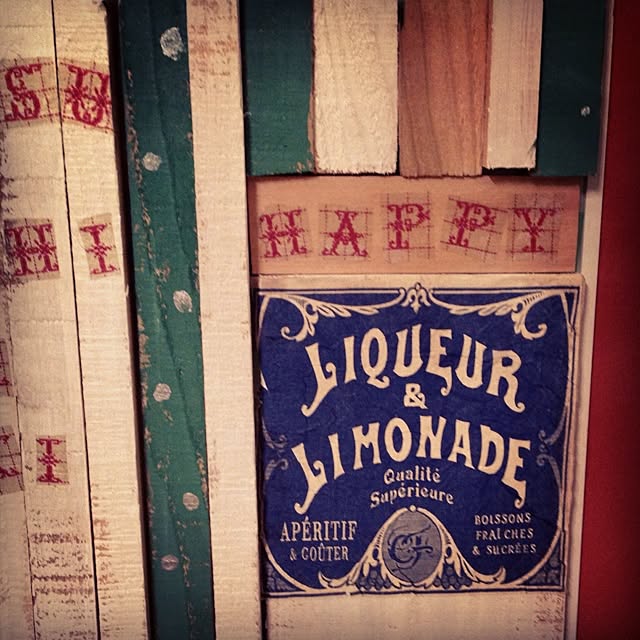 SU
HI
I
HAPPY
LIQUEUR
&
LIMONADE
Qualité
Supérieure
APÉRITIF
& GOÛTER
BOISSONS
FRAÎCHES
& SUCRÉES